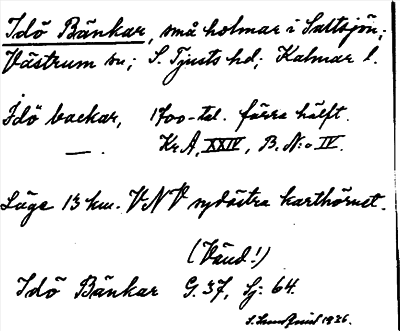 Idö Bänkar, små holmar i Saltsjön;
Västrum sn; S. Tjusts hd; Kalmar l.
Idö backar, 1700-tal. förra hälft.
— . Kr. A. XXIV, B. N:o IV.
Läge 13 km. VNV sydöstra karthörnet.
(Vänd!)
Idö Bänkar G. 37, Sj: 64.
1926.